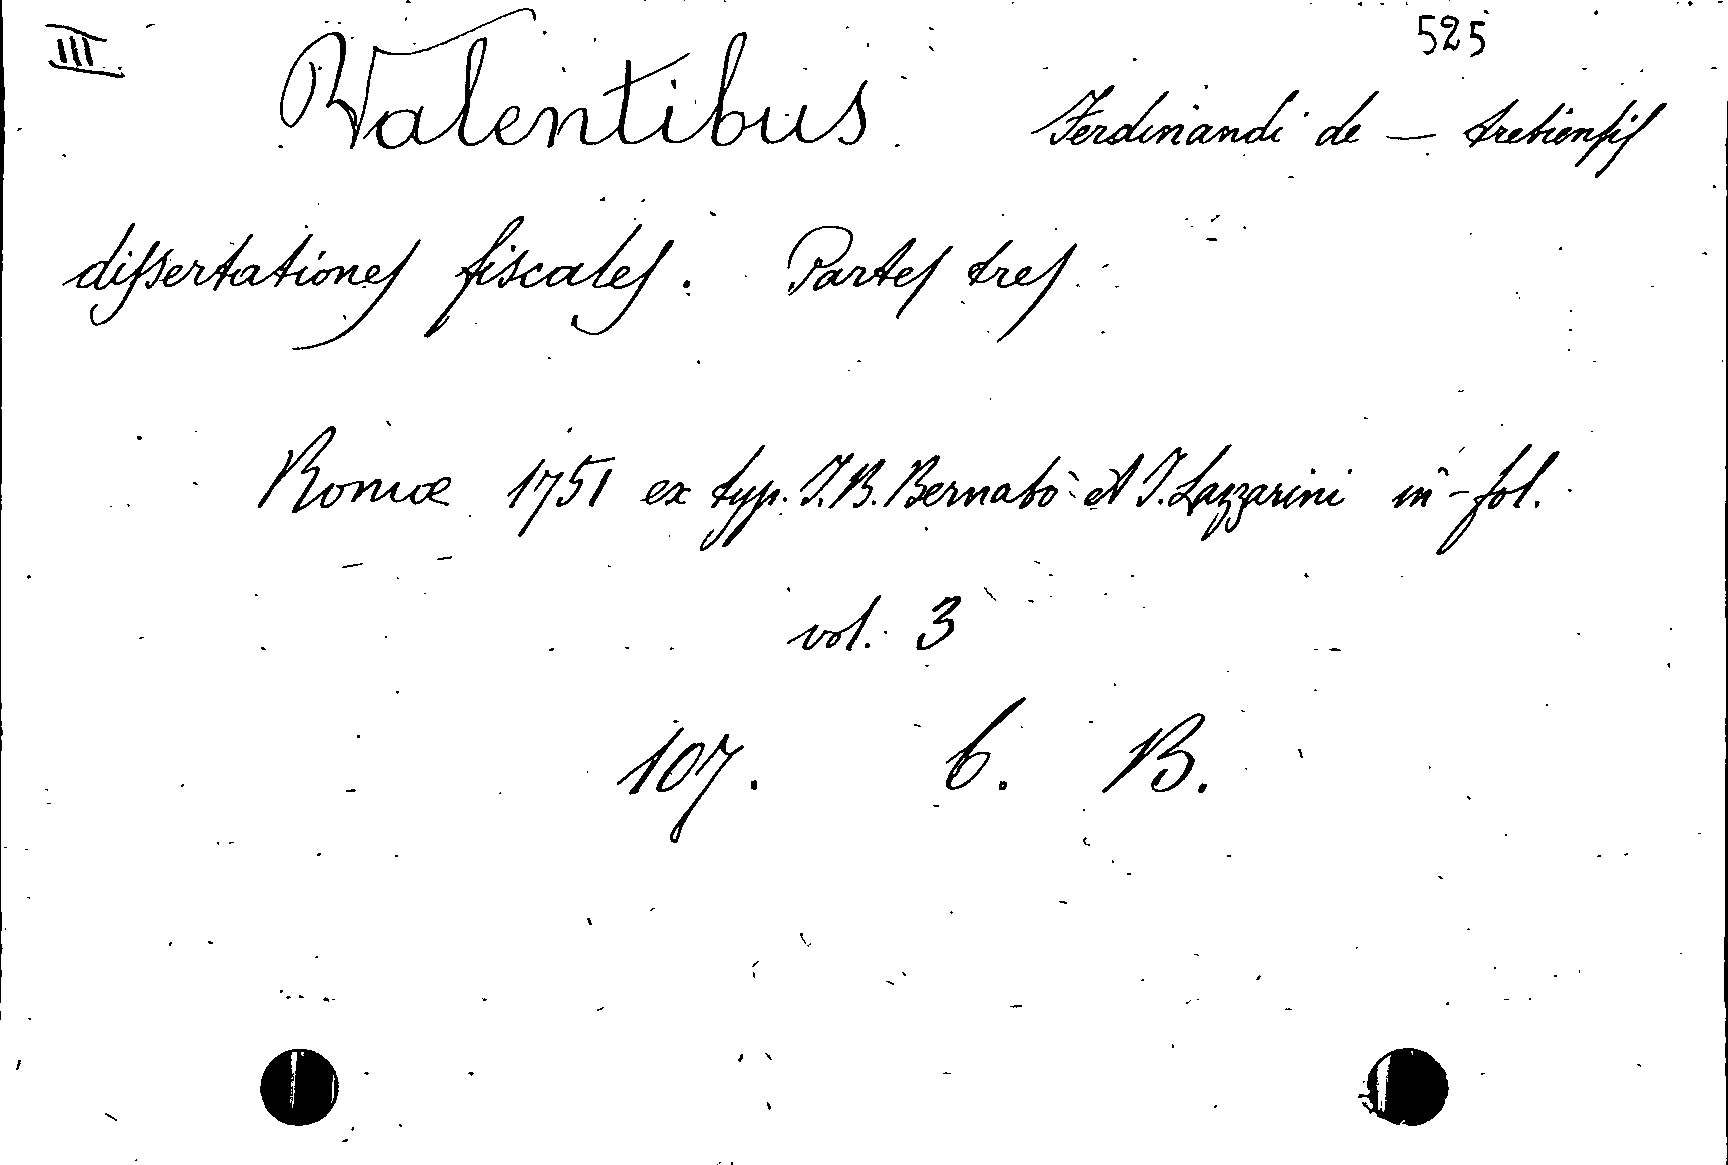 III 525
Valentibus Ferdinandi de — trebiensis
dissertationes fiscales. Partes tres
Romæ 1751 ex typ. J. B. Bernabò et J. Lazzarini in-fol.
vol. 3
107. 6. B.